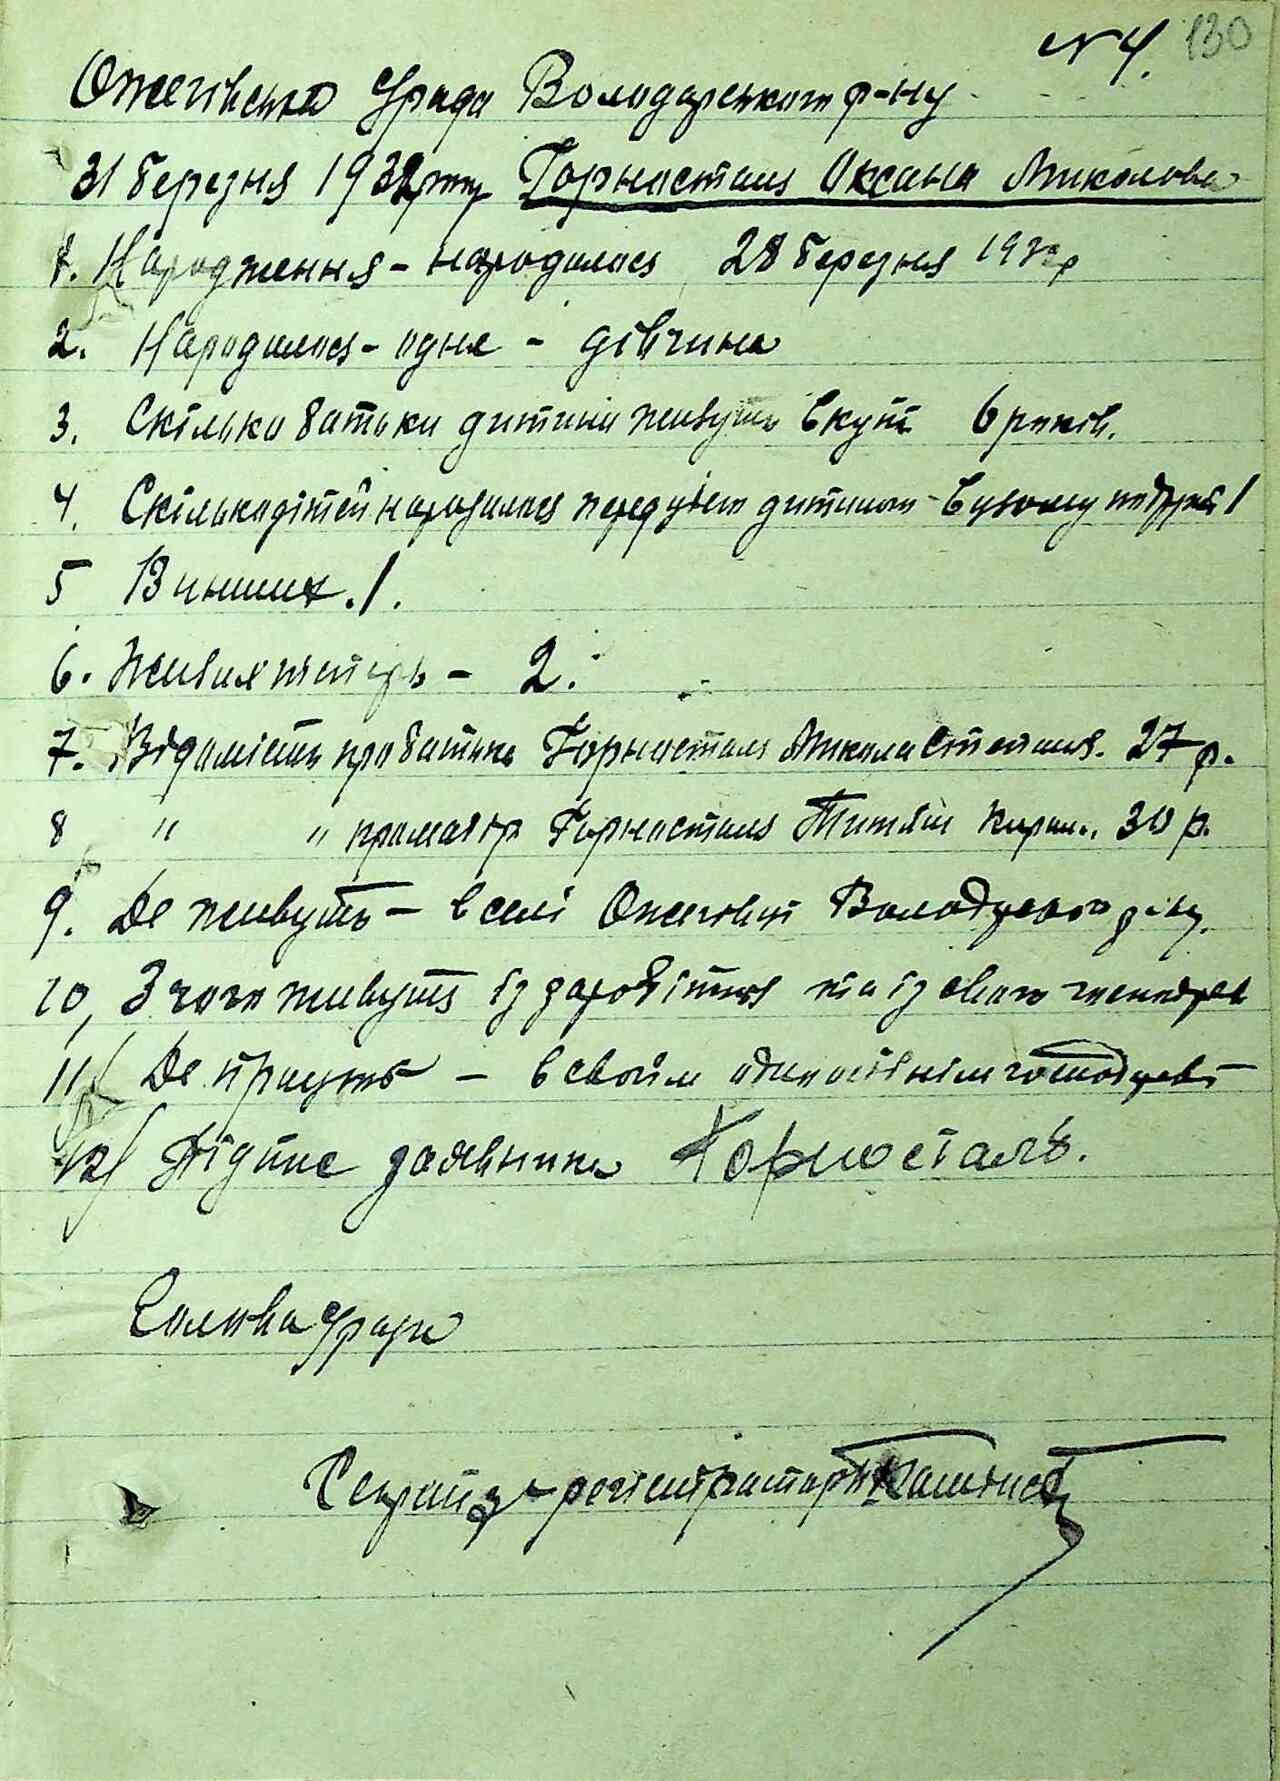 № 4. 130
Ожегівська С/рада Володарського р-ну
31 березня 1932 року Горносталь Оксана Миколова
1. Народження - народилась 28 березня 1932 р
2. Народилась - одна - дівчина
3. Скілько батьки дитини живуть вкупі 6 років.
4. Скілько дітей народилось перед цією дитиною - в цьому подружжі 1
5 В инших . 1.
6. Живих тепер - 2.
7. Відомість про батька Горносталь Микола Степанів. 27 р.
8 " " про матір Горносталь Титяна 30 р.
9. Де живуть - в селі Ожегівці Володарського р-ну.
10, З чого живуть із заробітков та із свого господар
11/ Де працують - в своїм одноосібнім господарстві
12/ Підпис заявника Горносталь.
Голова С/ради
Секретар реєстратор